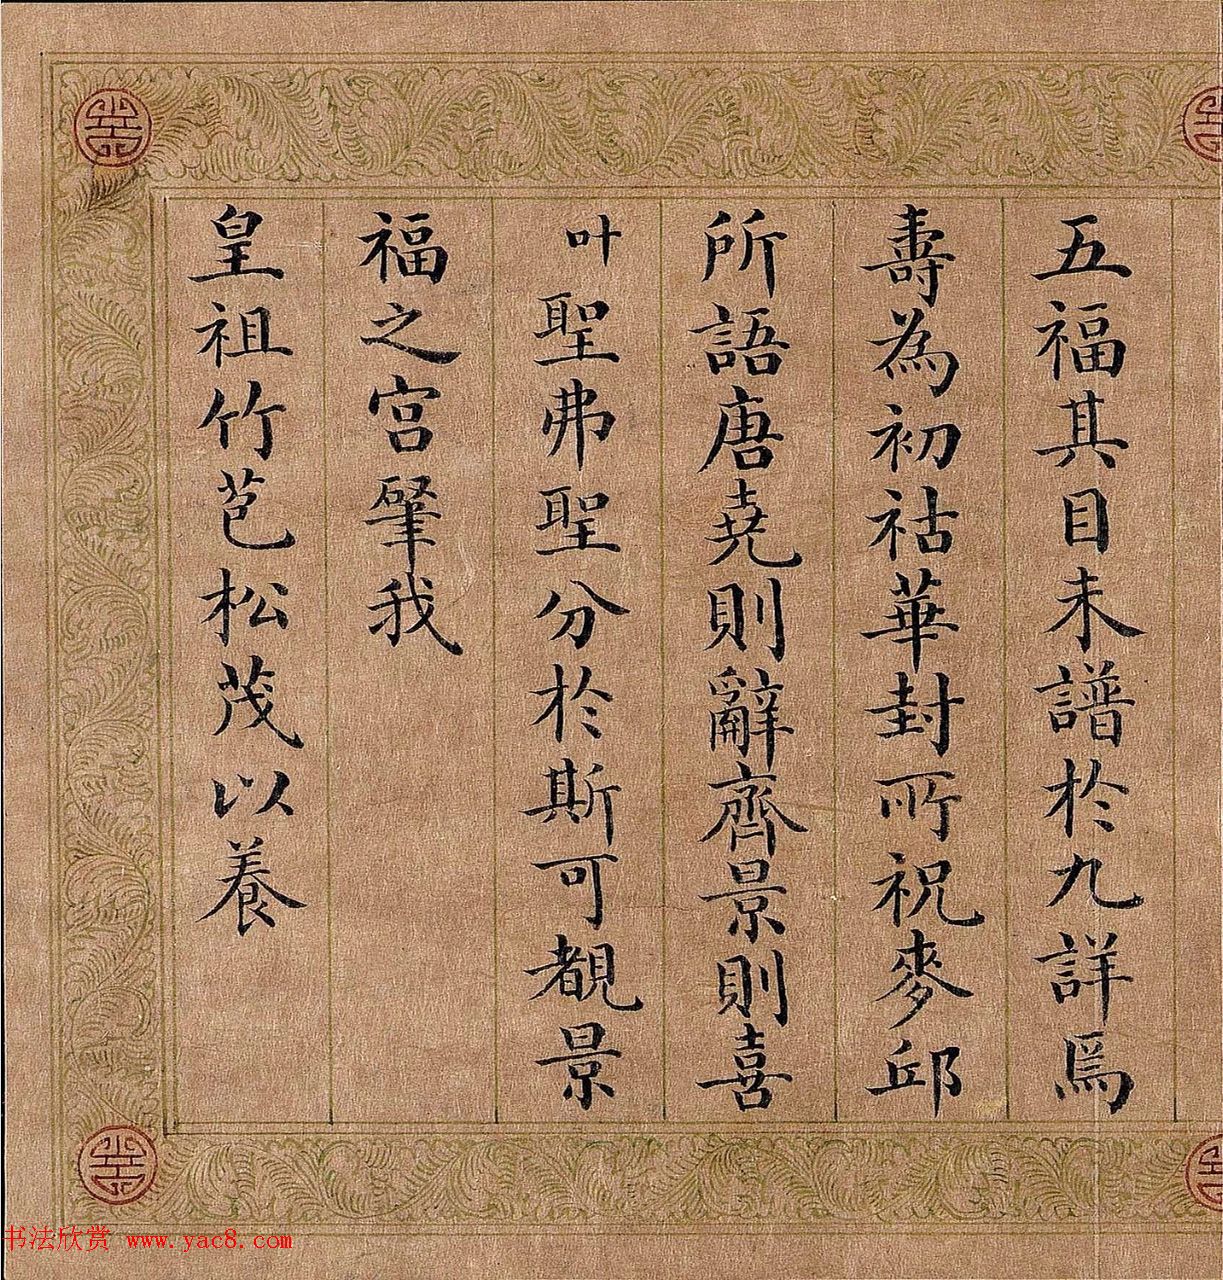 五福其目未譜於九詳焉
壽為初祜華封所祝麥邱
所語唐堯則辭齊景則喜
叶聖弗聖分於斯可覩景
福之宮肇我
皇祖竹苞松茂以養
书法欣赏 www.yac8.com